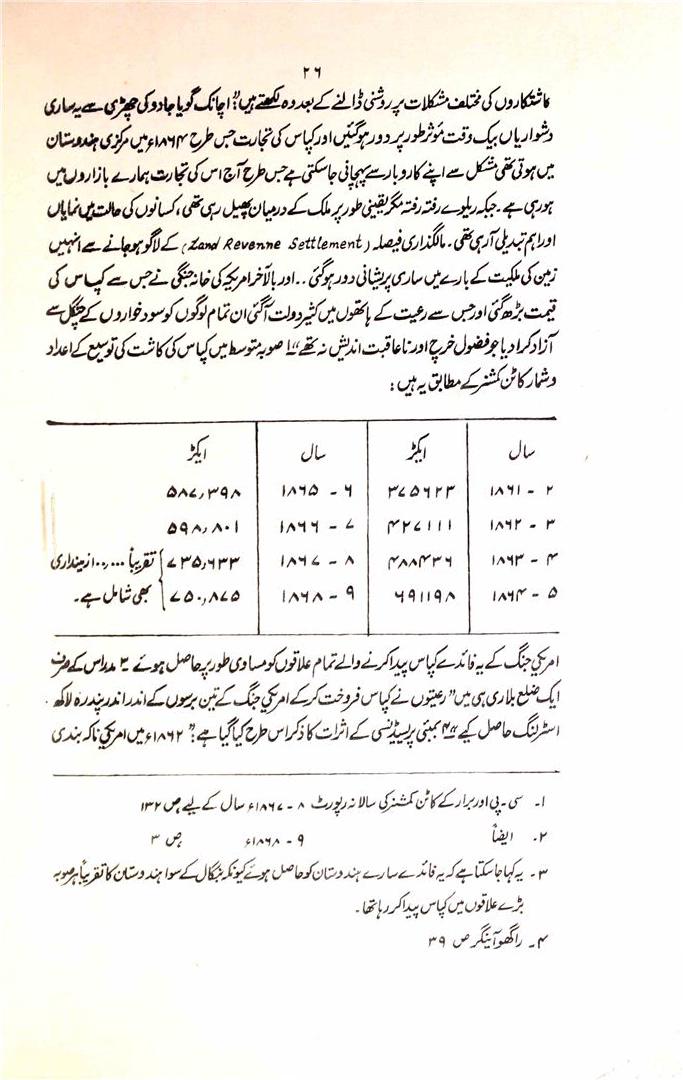 ۲۶
کاشتکاروں کی مختلف مشکلات پر روشنی ڈالنے کے بعد وہ لکھتے ہیں: "اچانک گویا جادو کی چھڑی سے یہ ساری
دشواریاں بیک وقت مؤثر طور پر دور ہوگئیں اور کپاس کی تجارت جس طرح ۱۸۶۴ء میں مرکزی ہندوستان
میں ہوتی تھی مشکل سے اپنے کاروبار سے پہچانی جاسکتی ہے جس طرح آج اس کی تجارت ہمارے بازاروں میں
ہورہی ہے۔ جبکہ ریلوے رفتہ رفتہ مگر یقینی طور پر ملک کے درمیان پھیل رہی تھی، کسانوں کی حالت میں نمایاں
اور اہم تبدیلی آرہی تھی۔ مالگذاری فیصلہ (Land Revenne Settlement) کے لاگو ہوجانے سے انہیں
زمین کی ملکیت کے بارے میں ساری پریشانی دور ہوگئی ... اور بالآخر امریکہ کی خانہ جنگی نے جس سے کپاس کی
قیمت بڑھ گئی اور جس سے رعیت کے ہاتھوں میں کثیر دولت آگئی ان تمام لوگوں کو سود خواروں کے چنگل سے
آزاد کرا دیا جو فضول خرچ اور ناعاقبت اندیش نہ تھے" ۱ صوبہ متوسط میں کپاس کی کاشت کی توسیع کے اعداد
و شمار کاٹن کمشنر کے مطابق یہ ہیں:
سال ایکڑ سال ایکڑ
۲ - ۱۸۶۱ ۳۷۵۶۲۳ ۶ - ۱۸۶۵ ۵۸۷,۳۹۸
۳ - ۱۸۶۲ ۴۲۷۱۱۱ ۷ - ۱۸۶۶ ۵۹۸,۸۰۱
۴ - ۱۸۶۳ ۴۸۸۴۳۶ ۸ - ۱۸۶۷ ۷۳۵,۶۳۳ تقریباً ازمینداری
۵ - ۱۸۶۴ ۶۹۱۱۹۸ ۹ - ۱۸۶۸ ۷۵۰,۸۷۵ بھی شامل ہے۔
امریکی جنگ کے یہ فائدے کپاس پیدا کرنے والے تمام علاقوں کو مساوی طور پر حاصل ہوئے ۳ مدراس کے صرف
ایک ضلع بلاری ہی میں "رعیتوں نے کپاس فروخت کرکے امریکی جنگ کے تین برسوں کے اندر اندر پندرہ لاکھ
اسٹرلنگ حاصل کیے" ۴ بمبئی پریسیڈنسی کے اثرات کا ذکر اس طرح کیا گیا ہے: "۱۸۶۲ء میں امریکی ناکہ بندی
۱۔ سی۔پی اور برار کے کاٹن کمشنر کی سالانہ رپورٹ ۸ - ۱۸۶۷ء سال کے لیے ص ۱۳۲
۲۔ ایضاً ۹ - ۱۸۶۸ء ص ۳
۳۔ یہ کہا جاسکتا ہے کہ یہ فائدے سارے ہندوستان کو حاصل ہوئے کیونکہ بنگال کے سوا ہندوستان کا تقریباً ہر صوبہ
بڑے علاقوں میں کپاس پیدا کر رہا تھا۔
۴۔ راگھوآینگر ص ۳۹